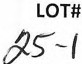 LOT#
25-1